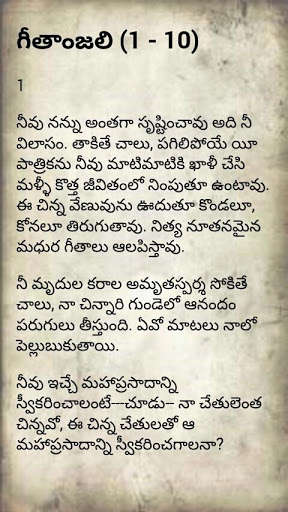 గీతాంజలి (1 - 10)
1
నీవు నన్ను అంతగా సృష్టించావు అది నీ
విలాసం. తాకితే చాలు, పగిలిపోయే యీ
పాత్రికను నీవు మాటిమాటికి ఖాళీ చేసి
మళ్ళీ కొత్త జీవితంలో నింపుతూ ఉంటావు.
ఈ చిన్న వేణువును ఊదుతూ కొండలూ,
కోనలూ తిరుగుతావు. నిత్య నూతనమైన
మధుర గీతాలు ఆలపిస్తావు.
నీ మృదుల కరాల అమృతస్పర్శ సోకితే
చాలు, నా చిన్నారి గుండెలో ఆనందం
పరుగులు తీస్తుంది. ఏవో మాటలు నాలో
పెల్లుబుకుతాయి.
నీవు ఇచ్చే మహాప్రసాదాన్ని
స్వీకరించాలంటే---చూడు-- నా చేతులెంత
చిన్నవో, ఈ చిన్న చేతులతో ఆ
మహాప్రసాదాన్ని స్వీకరించగాలనా?